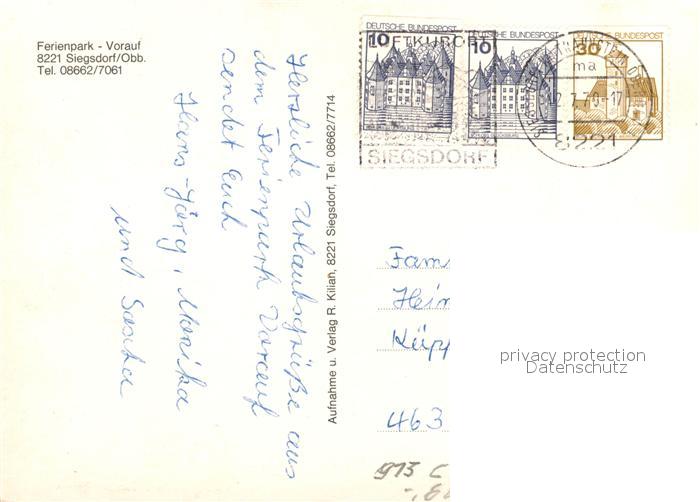 Ferienpark - Vorauf
8221 Siegsdorf/Obb.
Tel. 08662/7061
Herzliche Urlaubsgrüße aus
dem Ferienpark Vorauf
sendet Euch
Hans-Jörg, Marika
und Sascha
Aufnahme u. Verlag R. Kilian, 8221 Siegsdorf, Tel. 08662/7714
DEUTSCHE BUNDESPOST
10
DEUTSCHE BUNDESPOST
10
DEUTSCHE BUNDESPOST
30
LUFTKURORT
SIEGSDORF
ma
8221
Fam
Hein
Küpp
463
privacy protection
Datenschutz
913 C